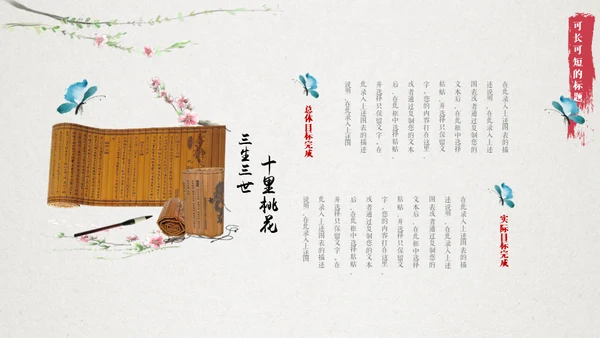 可长可短的标题
在此录入上述图表的描
述说明，在此录入上述
图表或者通过复制您的
文本后，在此框中选择
粘贴，并选择只保留文
字，您的内容打在这里，
或者通过复制您的文本
后，在此框中选择粘贴，
并选择只保留文字，在
此录入上述图表的描述
说明，在此录入上述图
总体目标完成
实际目标完成
在此录入上述图表的描
述说明，在此录入上述
图表或者通过复制您的
文本后，在此框中选择
粘贴，并选择只保留文
字，您的内容打在这里，
或者通过复制您的文本
后，在此框中选择粘贴，
并选择只保留文字，在
此录入上述图表的描述
说明，在此录入上述图
十里桃花
三生三世